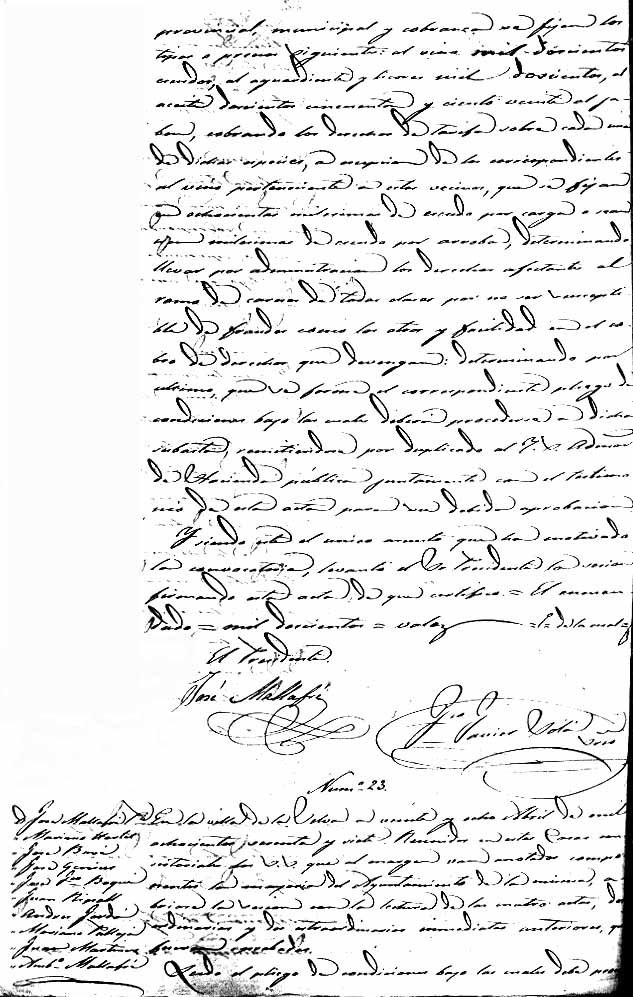 provincial, municipal y cobranza se fijan los
tipos o precios siguientes: al vino mil doscientos
escudos, al aguardiente y licores mil doscientos, al
aceite doscientos cincuenta y ciento veinte al ja-
bon, cobrando los derechos de tarifa sobre cada una
de dichas especies, a escepcion de los correspondientes
al vino perteneciente a estos vecinos, que se fijan
en ochocientas milesimas de escudo por carga o sean
milesimas de escudo por arroba, determinando
llevar por administracion los derechos afectantes al
ramo de carnes de todas clases por no ser suscepti-
ble de fraudes como los otros y facilidad en el co-
bro de derechos que devengan: determinando por
ultimo, que se forme el correspondiente pliego de
condiciones bajo las cuales deberá procederse a dicha
subasta, remitiendose por duplicado al Admor
de Hacienda pública juntamente con el testimo-
nio de esta acta para su debida aprobacion
Y siendo este el unico asunto que ha motivado
la convocatoria, levantó el Sr Presidente la sesion
firmando esta acta de que certifico = El enmen-
dado = mil doscientos = vale
El Presidente
José Mallafré
Javier Solá Srio
Num.o 23.
D. José Mallafré Pte En la villa de la Selva a veinte y ocho Abril de mil
Mariano ochocientos sesenta y siete. Reunidos en estas Casas con-
José sistoriales los SS. que al margen van anotados compo-
José nentes la mayoria del Ayuntamiento de la misma, a-
José bierta la sesion con la lectura de las cuatro actas, dos
Juan Ripoll ordinarias y dos estraordinarias inmediatas anteriores, que
Andres Jordá fueron aprobadas.
Mariano
Juan Martinez
Antº Mallafré Leido el pliego de condiciones bajo las cuales debe